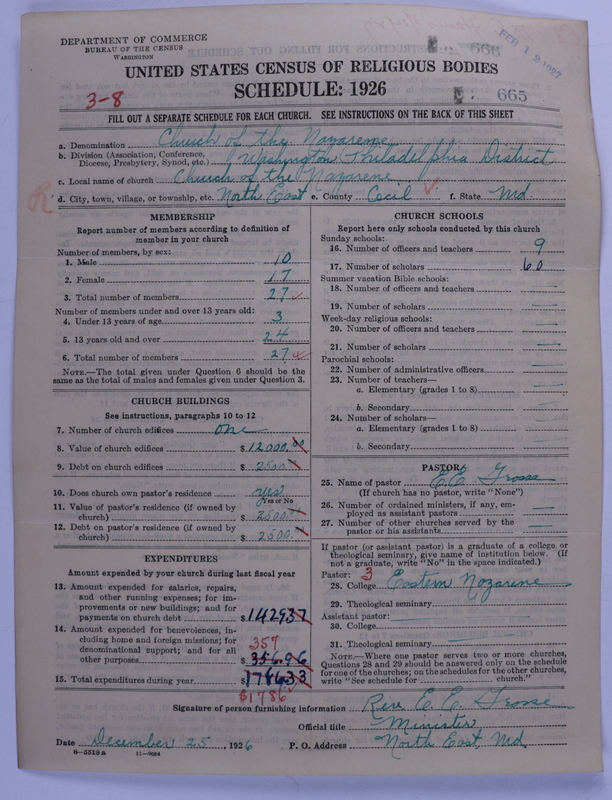 DEPARTMENT OF COMMERCE
BUREAU OF THE CENSUS
WASHINGTON
666
FEB 19 1927
UNITED STATES CENSUS OF RELIGIOUS BODIES
SCHEDULE: 1926
3-8
665
FILL OUT A SEPARATE SCHEDULE FOR EACH CHURCH. SEE INSTRUCTIONS ON THE BACK OF THIS SHEET
a. Denomination Church of the Nazarene
b. Division (Association, Conference, Diocese, Presbytery, Synod, etc.) Washington Philadelphia District
c. Local name of church Church of the Nazarene
R d. City, town, village, or township, etc. North East e. County Cecil f. State Md.
MEMBERSHIP
Report number of members according to definition of member in your church
Number of members, by sex:
1. Male 10
2. Female 17
3. Total number of members 27
Number of members under and over 13 years old:
4. Under 13 years of age 3
5. 13 years old and over 24
6. Total number of members 27
NOTE.—The total given under Question 6 should be the same as the total of males and females given under Question 3.
CHURCH BUILDINGS
See instructions, paragraphs 10 to 12
7. Number of church edifices one
8. Value of church edifices $12000.00
9. Debt on church edifices $2500.
10. Does church own pastor's residence yes
Yes or No
11. Value of pastor's residence (if owned by church) $2500.
12. Debt on pastor's residence (if owned by church) $2500.
EXPENDITURES
Amount expended by your church during last fiscal year
13. Amount expended for salaries, repairs, and other running expenses; for improvements or new buildings; and for payments on church debt $142937
14. Amount expended for benevolences, including home and foreign missions; for denominational support; and for all other purposes $356.96
357
15. Total expenditures during year $178633
$1786
CHURCH SCHOOLS
Report here only schools conducted by this church
Sunday schools:
16. Number of officers and teachers 9
17. Number of scholars 60
Summer vacation Bible schools:
18. Number of officers and teachers
19. Number of scholars
Week-day religious schools:
20. Number of officers and teachers
21. Number of scholars
Parochial schools:
22. Number of administrative officers
23. Number of teachers—
a. Elementary (grades 1 to 8)
b. Secondary
24. Number of scholars—
a. Elementary (grades 1 to 8)
b. Secondary
PASTOR
25. Name of pastor E.E. Grosse
(If church has no pastor, write "None")
26. Number of ordained ministers, if any, employed as assistant pastors
27. Number of other churches served by the pastor or his assistants
If pastor (or assistant pastor) is a graduate of a college or theological seminary, give name of institution below. (If not a graduate, write "No" in the space indicated.)
Pastor: 3
28. College Eastern Nazarene
29. Theological seminary
Assistant pastor:
30. College
31. Theological seminary
NOTE.—Where one pastor serves two or more churches, Questions 28 and 29 should be answered only on the schedule for one of the churches; on the schedules for the other churches, write "See schedule for church."
Signature of person furnishing information Rev. E. E. Grosse
Official title Minister
Date December 25, 1926 P. O. Address North East, Md.
8—5519a 11—9034